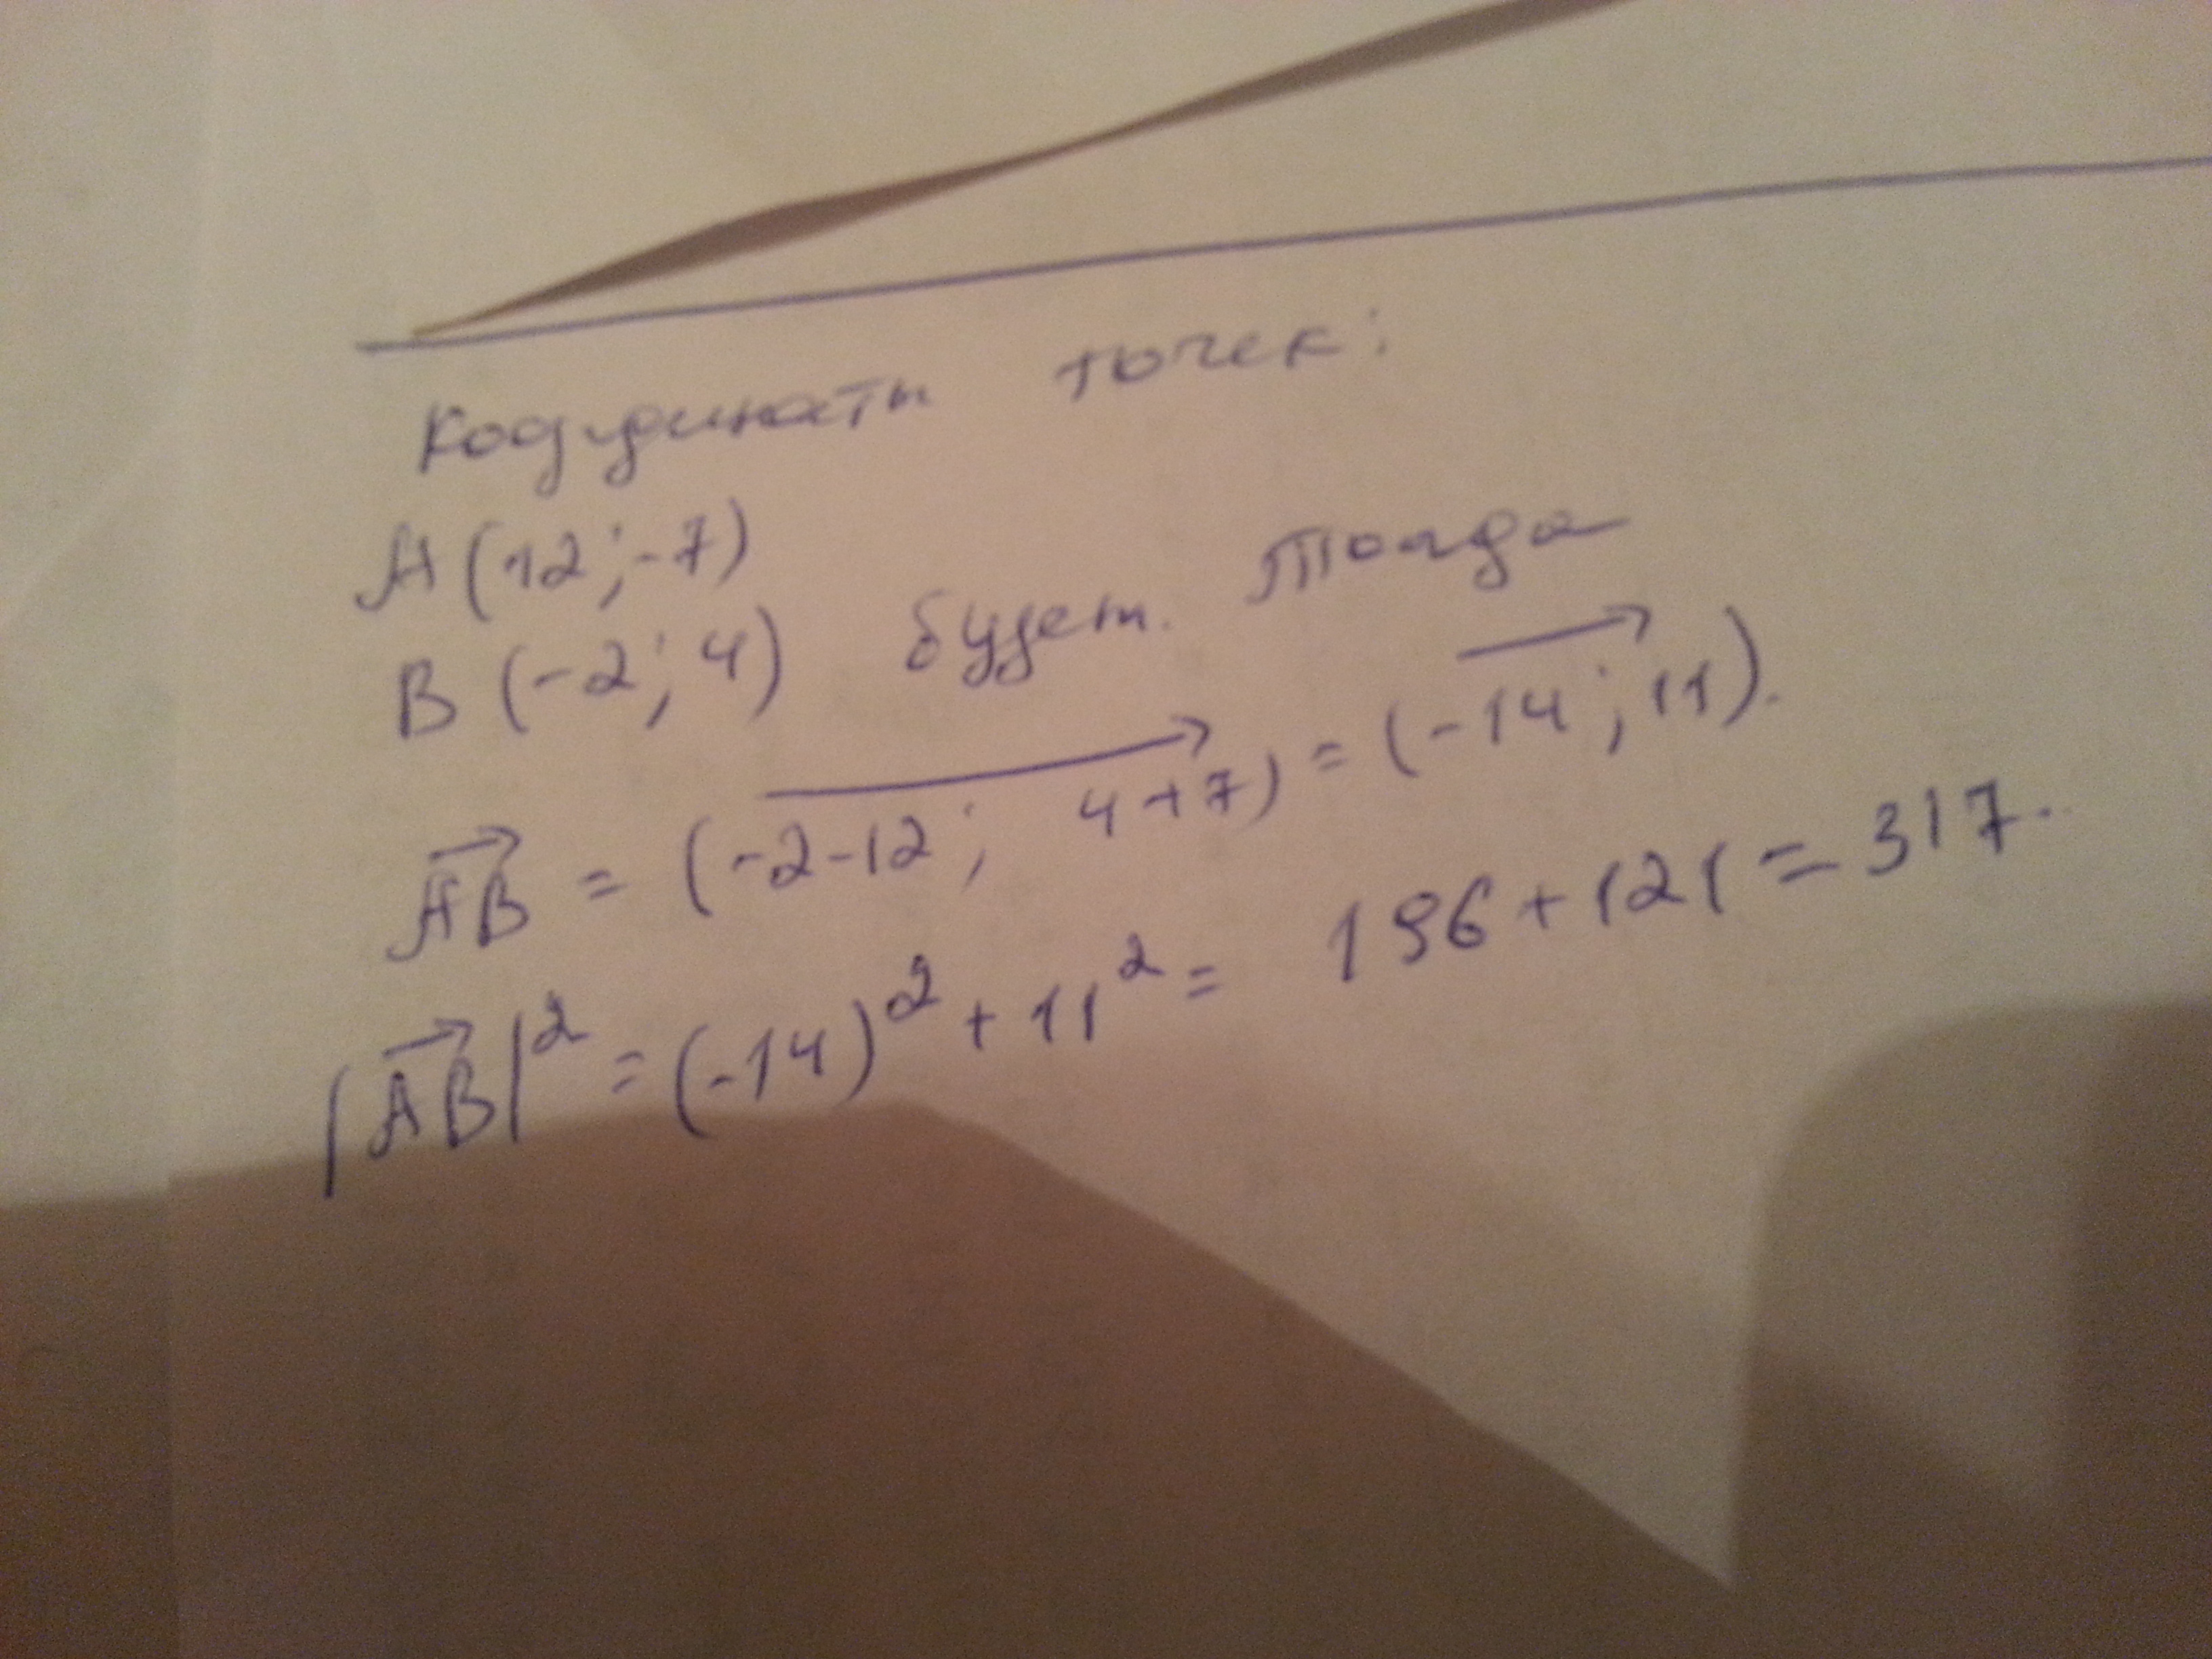 Координаты точек:
A(12;-7)
B(-2;4) будет. Тогда
AB = (-2-12; 4+7) = (-14; 11).
|AB|² = (-14)² + 11² = 196 + 121 = 317.